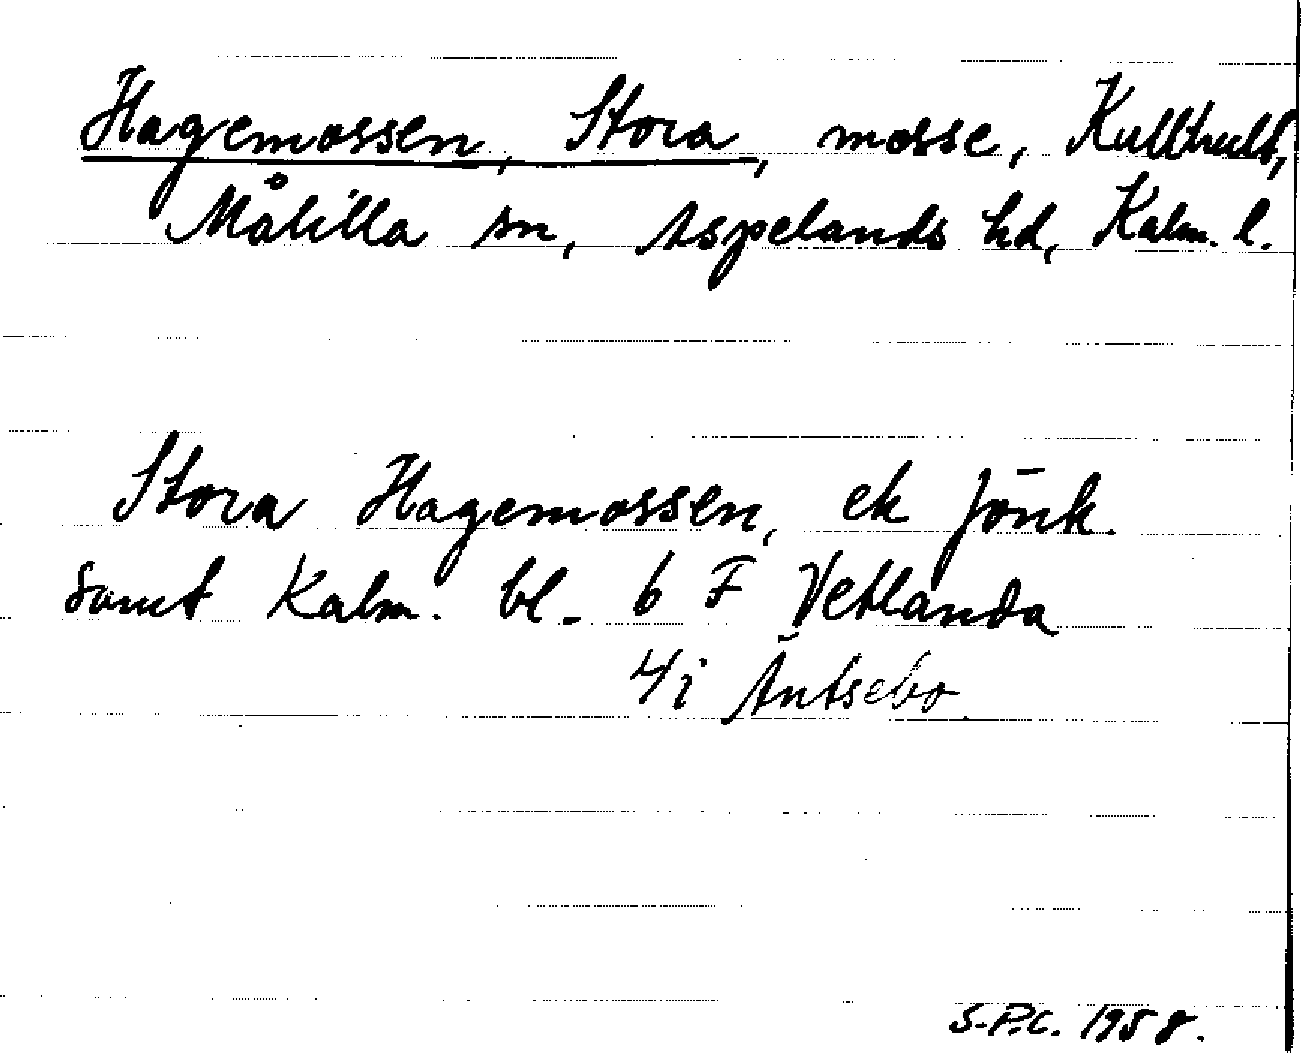 Hagemossen, Stora, mosse, Kulltult,
Målilla sn, Aspelands hd, Kalm. l.
Stora Hagemossen, ek Jönk.
samt Kalm. bl. 6 F Vetlanda
4i Äntsebo
S.P.C. 1958.